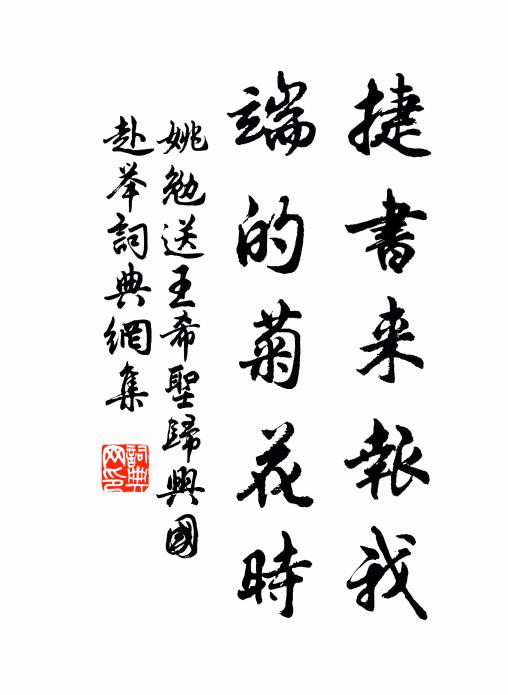 捷書来報我
端的菊花時
姚勉送王希聖歸興國
赴举詞典網集
詞典网印